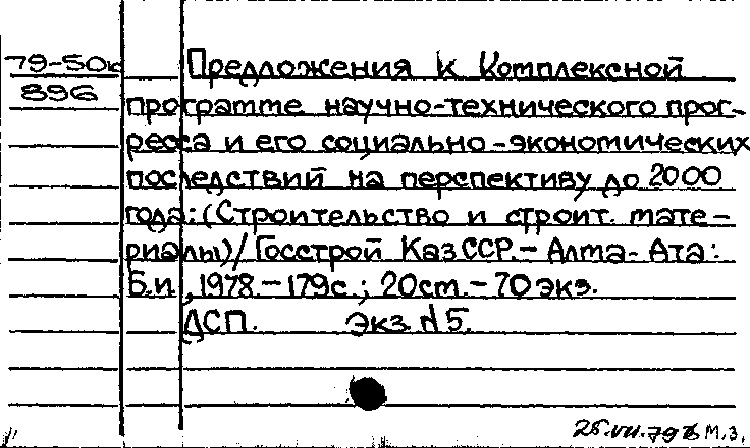 79-50к
896
Предложения к Комплексной
программе научно-технического прог-
ресса и его социально-экономических
последствий на перспективу до 2000
года: (Строительство и строит. мате-
риалы)/Госстрой КазССР.- Алма-Ата:
Б.и., 1978.-179с.; 20ст.-70экз.
ДСП. Экз. N5.
М.З